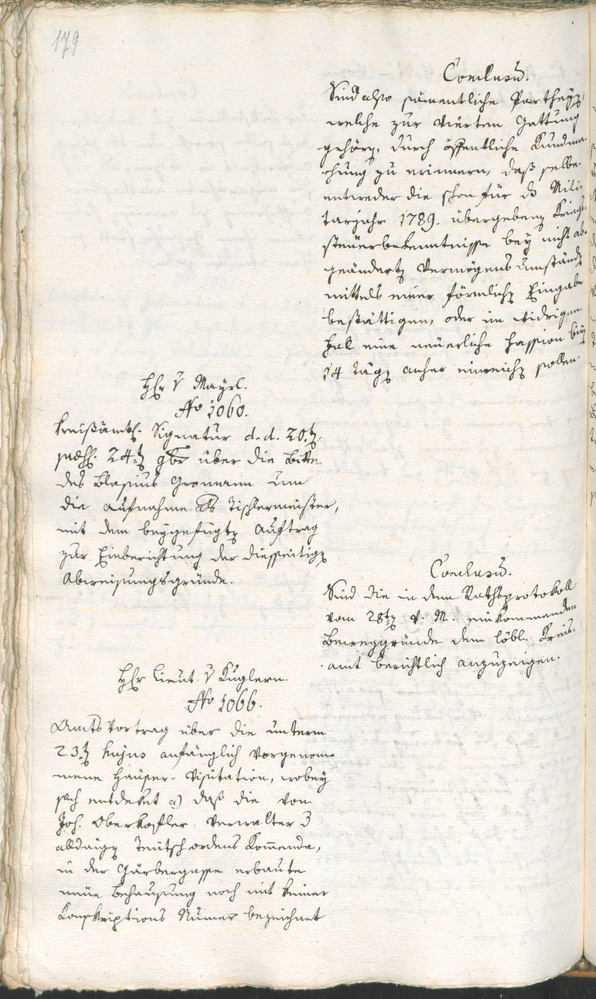 179
Conclusum.
Sind also sämentliche Partheyen,
welche zur vierten Gattung
gehören, durch öffentliche Kundma-
chung zu erinnern, daß selbe
entweder die schon für das Mili-
tarjahr 1789. übergebenen Kriegs-
steuerbekenntnisse bey nicht ab-
geänderten Vermögens Umständen
mittels einer förmlichen Eingabe
bestättigen, oder im widrigen
Fal eine neuerliche Fassion binnen
14 Tägen anher einreichen sollen.
Hhr v Mayrl.
No 1060.
Kreisämtl. Signatur d. d. 20.ten
præs. 24ten 9br über die Bitte
des Blasius Gromann um
die Aufnahme als Tischlermeister,
mit dem beygefügten Auftrag
zur Einberichtung der diesseitigen
Abweisungsgründe.
Conclusum.
Sind die in dem Rathsprotokoll
vom 28ten v. M. einkommenden
Beweggründe dem löbl. Kreis-
amt berichtlich anzuzeigen.
Hhr Lieut. v Kuglern.
No 1066.
Amts Vortrag über die unterm
23ten hujus anfänglich vorgenom-
mene Häuser-Visitation, wobey
sich entdeket a) daß die von
Joh. Oberkofler, Verwalter der
alldaigen Teutschordens Kommenda,
in der Gärbergasse erbaute
neue Behausung noch mit keiner
Konskriptions Numer bezeichnet